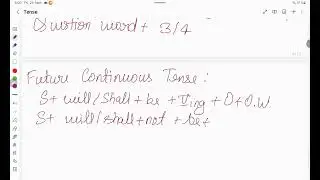 Tense
Question word + 3/4
Future Continuous Tense :
S+ will/shall + be + Ving + O + O.W.
S+ will/shall + not + be +